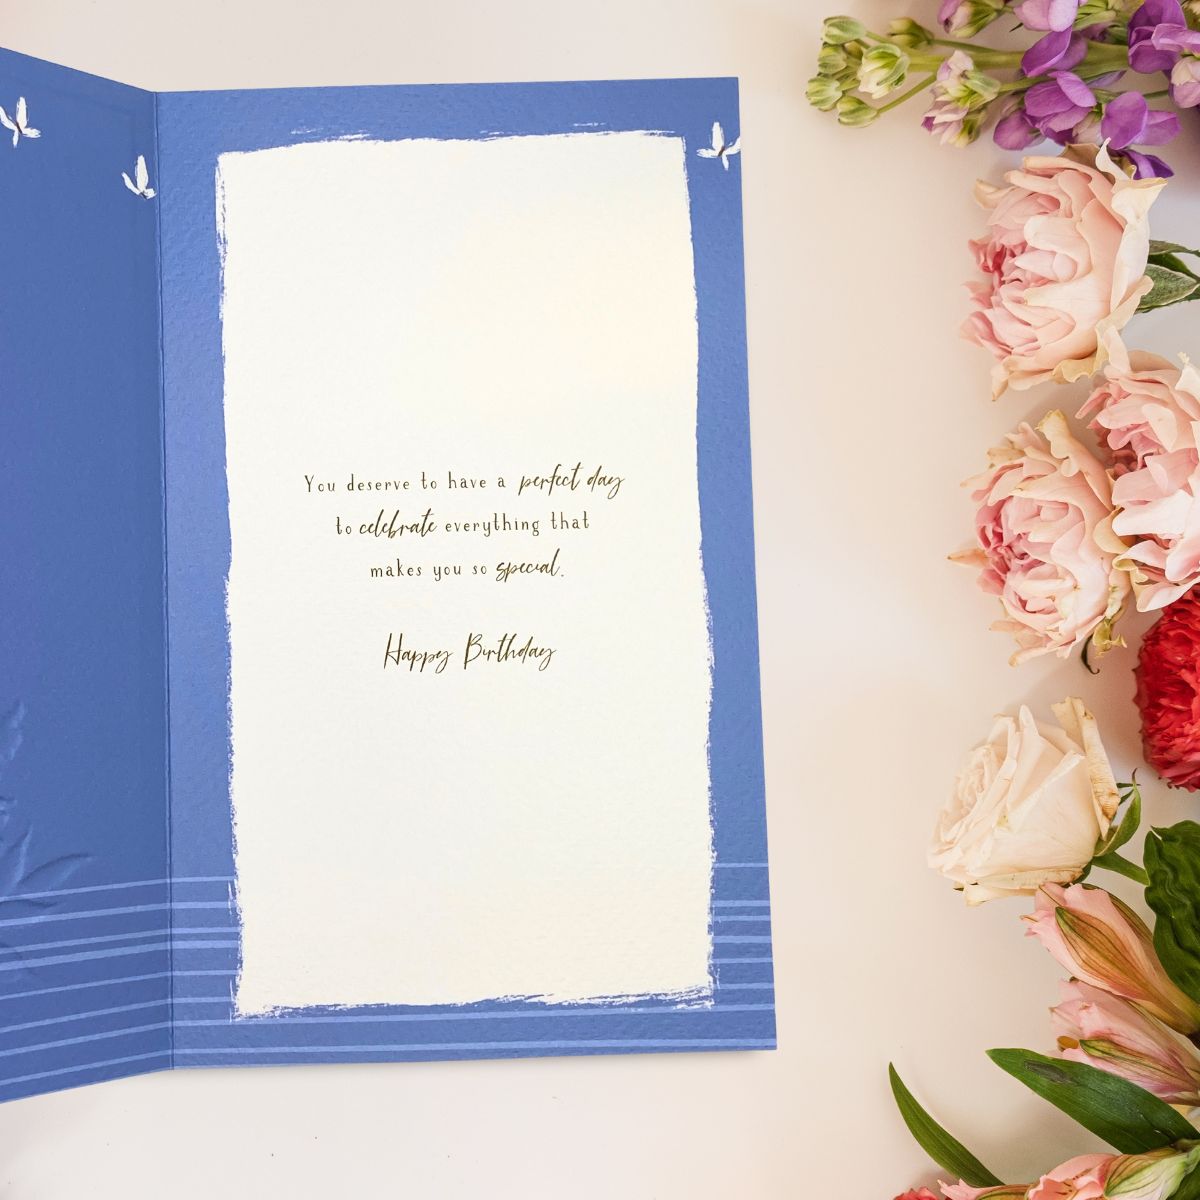 You deserve to have a perfect day
to celebrate everything that
makes you so special.
Happy Birthday